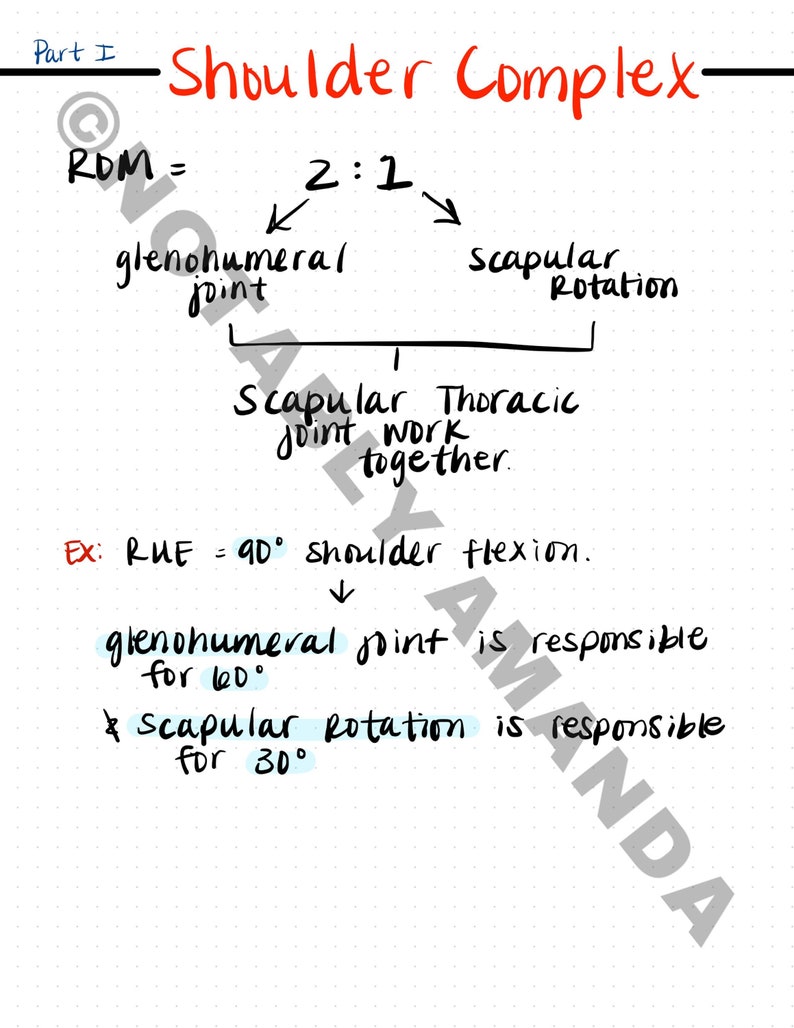 Part I
Shoulder Complex
ROM = 2 : 1
glenohumeral
joint
scapular
Rotation
Scapular Thoracic
joint work
together.
Ex: RUE = 90° shoulder flexion.
glenohumeral joint is responsible
for 60°
& scapular Rotation is responsible
for 30°
©NOTABLY AMANDA